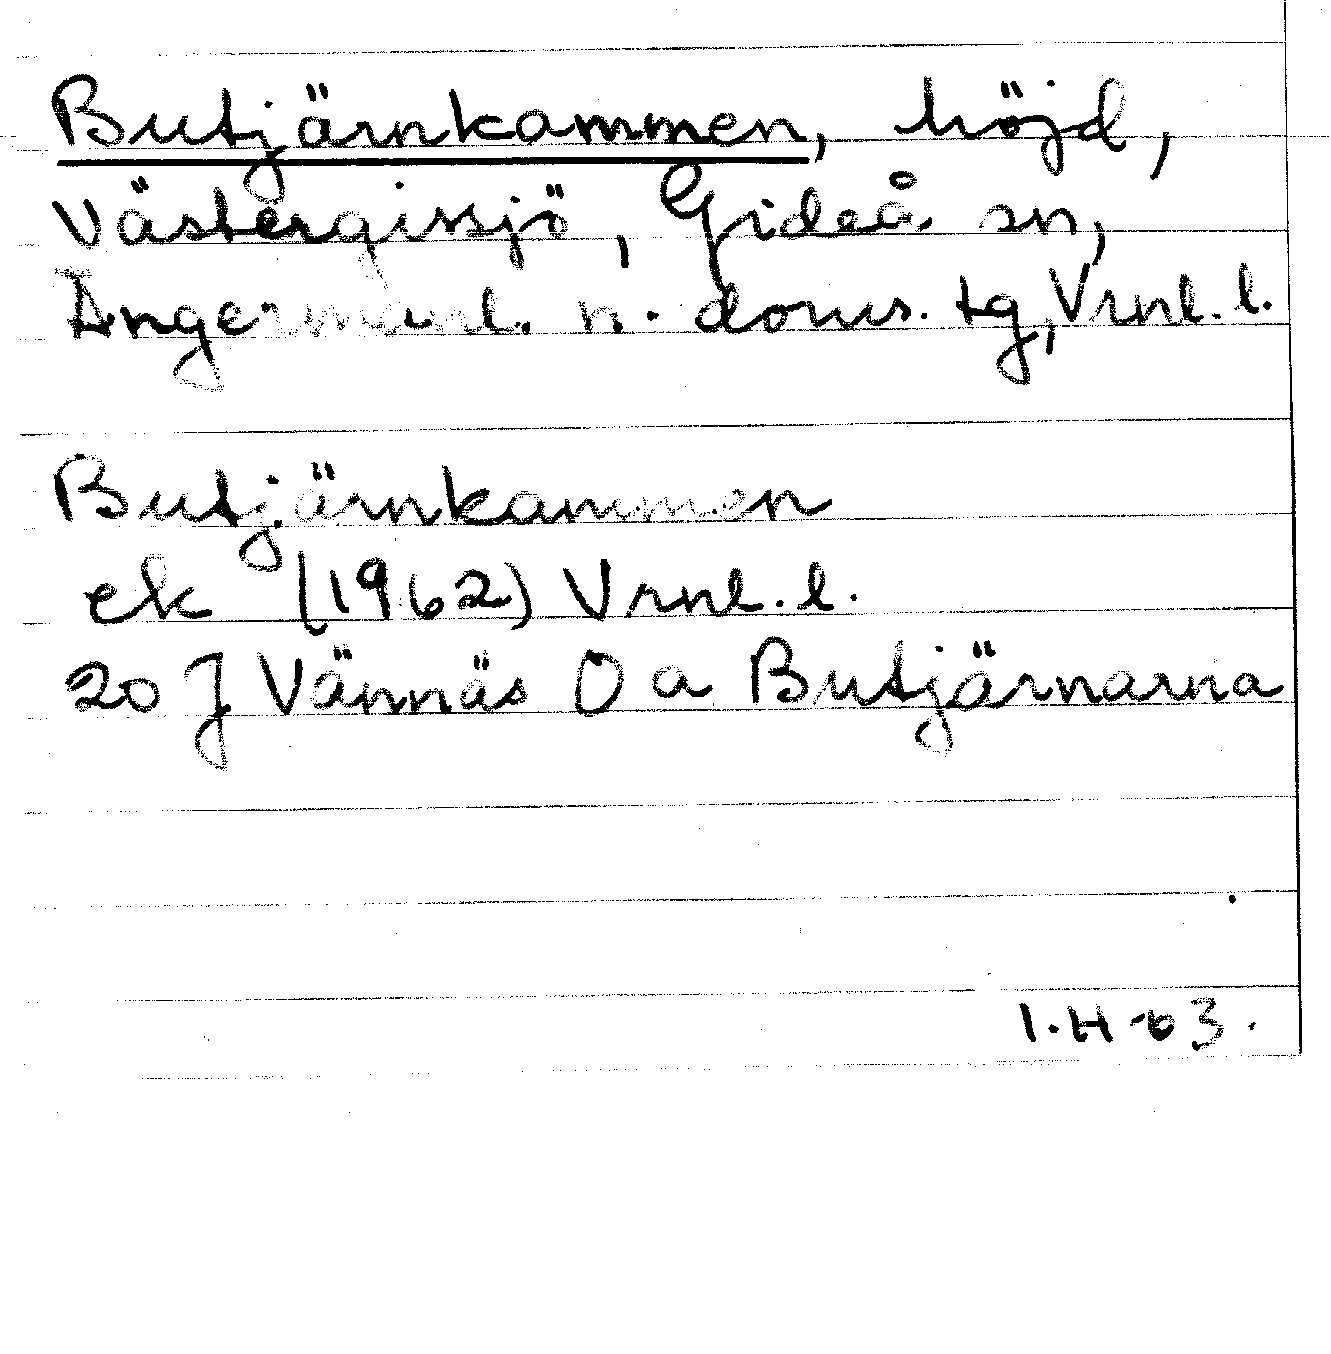 Butjärnkammen, höjd,
Västergissjö, Gideå sn,
Ångermanl. n. doms. tg, Vrnl. l.
Butjärnkammen
ek (1962) Vrnl. l.
20 J Vännäs O a Butjärnarna
I.H-63.